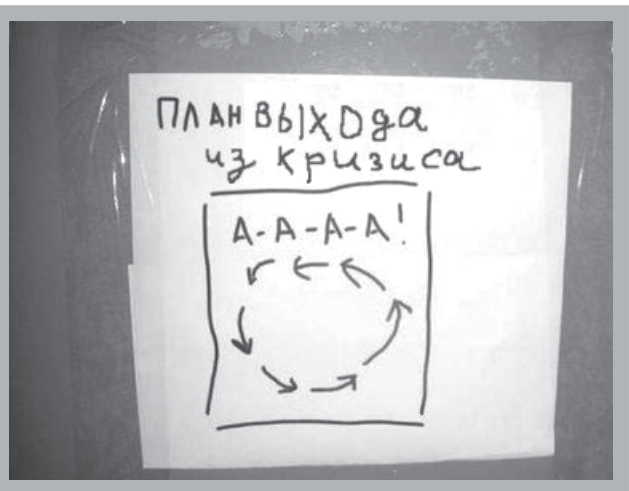 ПЛАН ВЫХОДа
из кризиса
А-А-А-А!